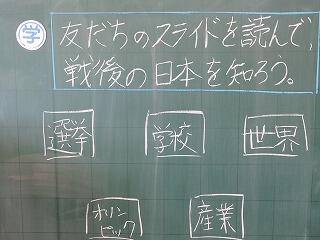 学
友だちのスライドを読んで、
戦後の日本を知ろう。
選挙 学校 世界
オリン
ピック
産業